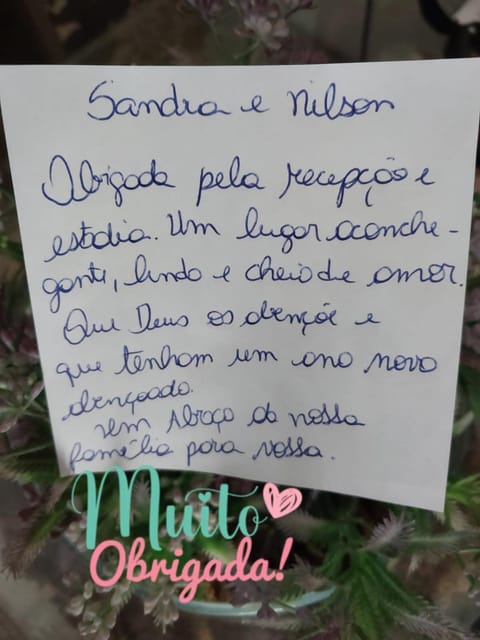 Sandra e Nilson
Obrigada pela recepção e
estadia. Um lugar aconche-
gante, lindo e cheio de amor.
Que Deus os abençõe e
que tenham um ano novo
abençoado.
um Abraço da nossa
família para vossa.
Muito
Obrigada!